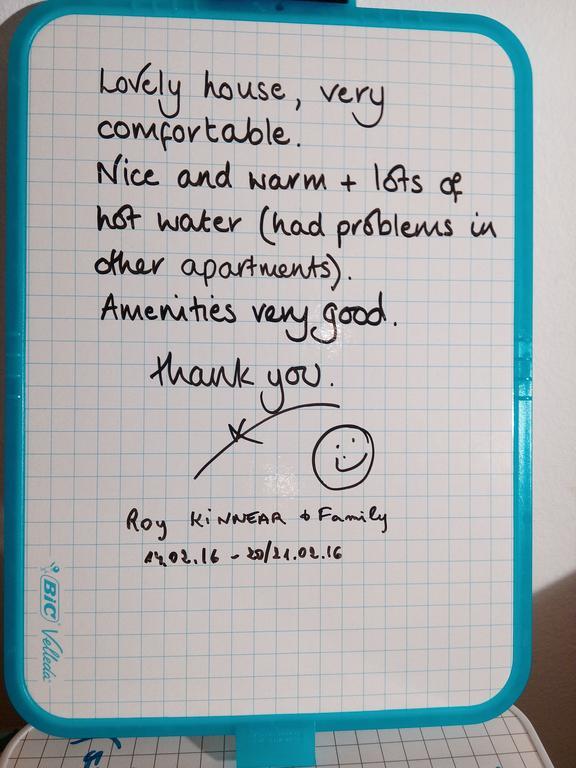 Lovely house, very
comfortable.
Nice and warm + lots of
hot water (had problems in
other apartments).
Amenities very good.
thank you.
Roy KiNNEAR & Family
14.02.16 - 20/21.02.16
BiC Velleda